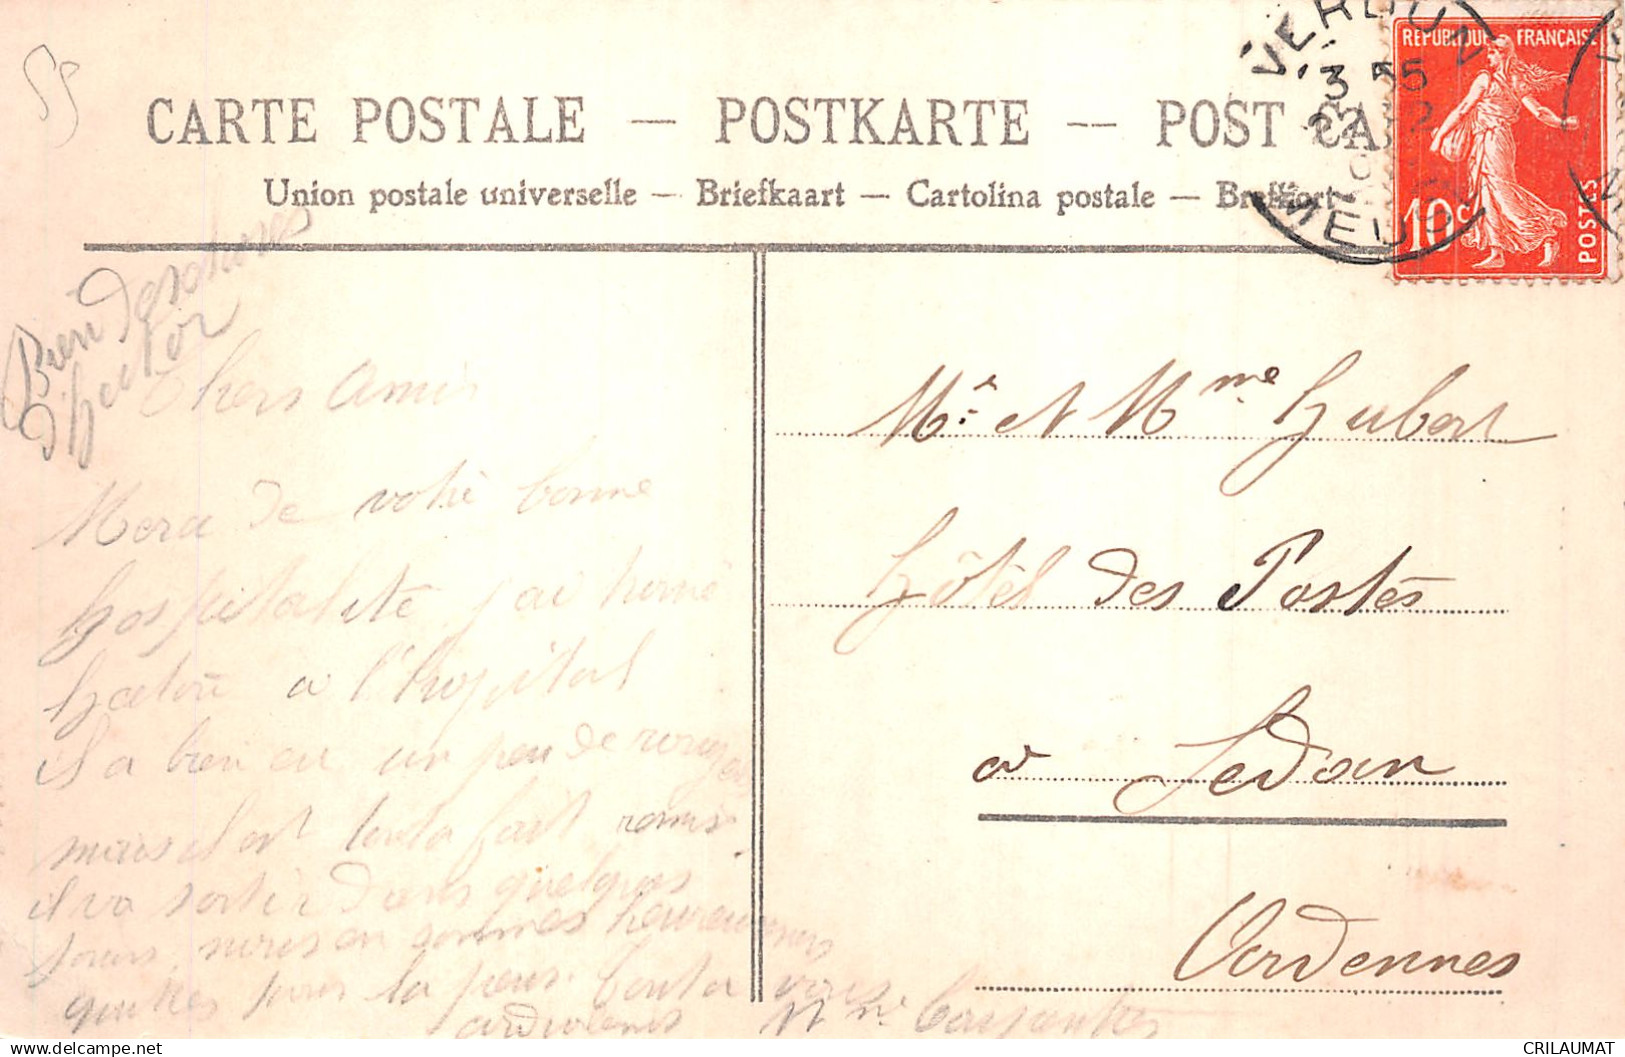 55
CARTE POSTALE — POSTKARTE — POST CA
Union postale universelle — Briefkaart — Cartolina postale —
VERDUN
3 55
22
MEUSE
REPUBLIQUE FRANÇAISE
10 c
POSTES
Bien des choses
d'hector
Chers Amis
Merci de votre bonne
hospitalité j'ai
hector a l'hopital
il a bien eu un peu de
mais il est tout a fait remis
il va sortir dans quelques
jours, nous en sommes heureux
quittes pour la peur. bonta vous
Mr et Mme Hubert
Hôtel des Postes
a Sedan
Ardennes
CRILAUMAT